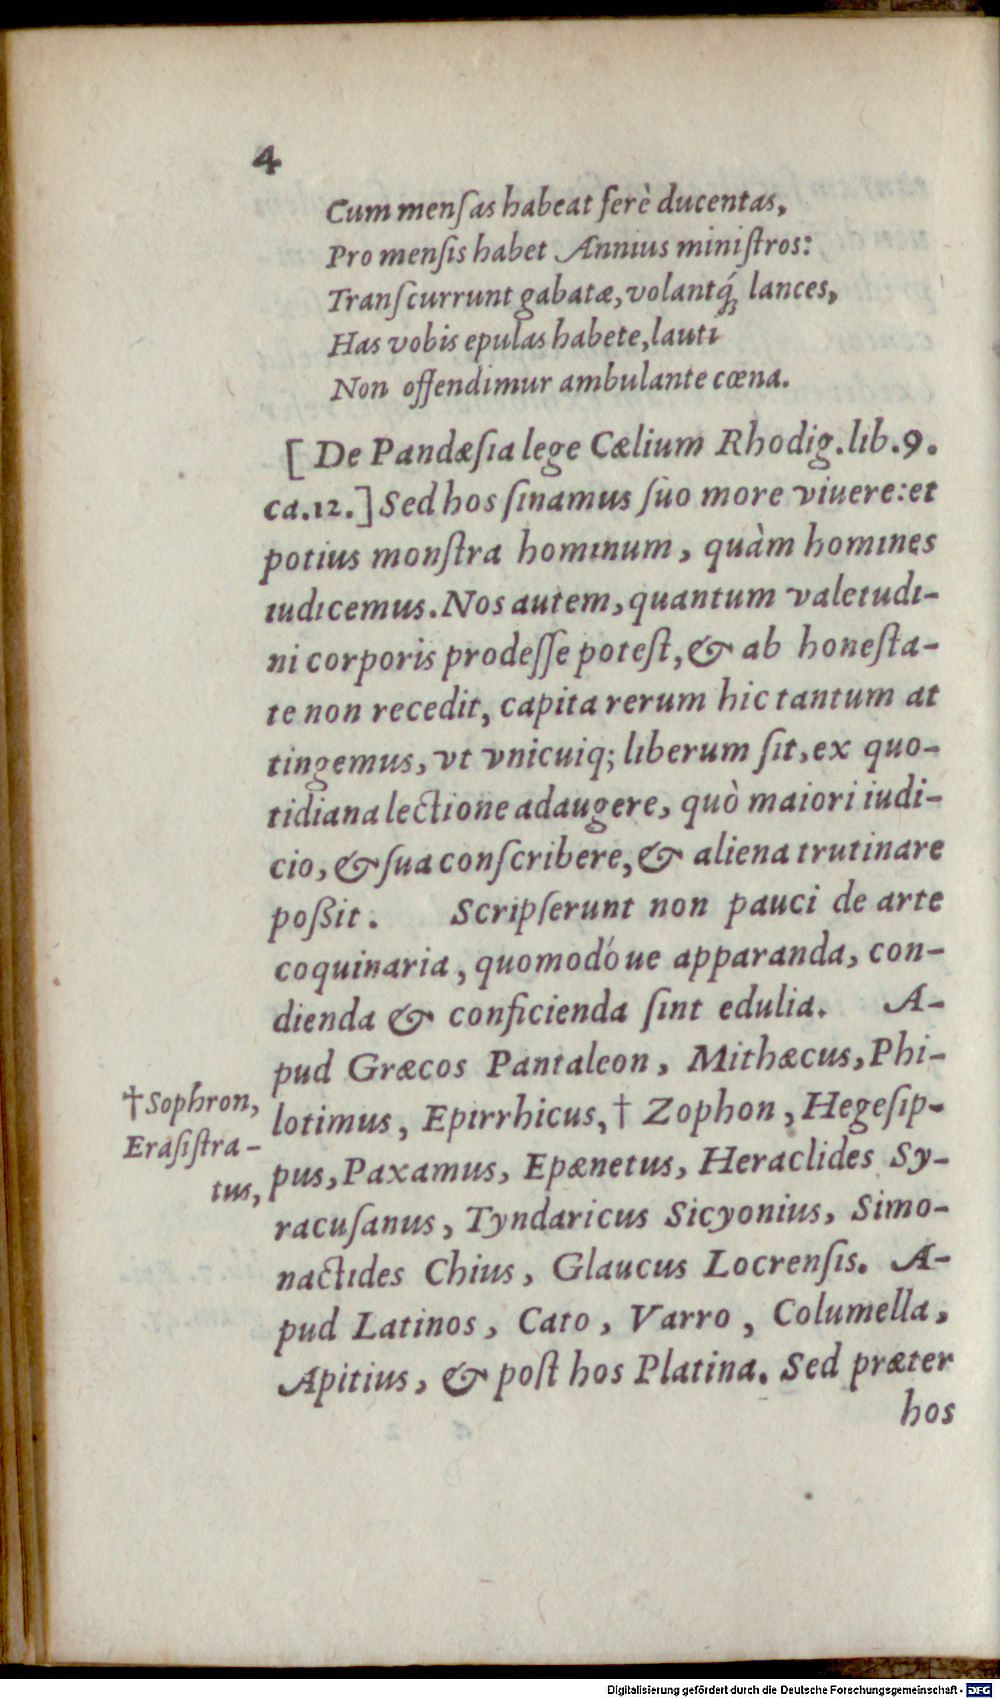 4
Cum menſas habeat ferè ducentas,
Pro menſis habet Annius miniſtros:
Tranſcurrunt gabatæ, volantq́; lances,
Has vobis epulas habete, lauti
Non offendimur ambulante cœna.
[De Pandæſia lege Cælium Rhodig. lib. 9.
ca. 12.] Sed hos ſinamus ſuo more viuere: et
potius monſtra hominum, quàm homines
iudicemus. Nos autem, quantum valetudi-
ni corporis prodeſſe poteſt, & ab honeſta-
te non recedit, capita rerum hic tantum at
tingemus, vt vnicuiq; liberum ſit, ex quo-
tidiana lectione adaugere, quò maiori iudi-
cio, & ſua conſcribere, & aliena trutinare
poßit. Scripſerunt non pauci de arte
coquinaria, quomodóue apparanda, con-
dienda & conficienda ſint edulia. A-
pud Græcos Pantaleon, Mithæcus, Phi-
†Sophron,
Eraſiſtra-
tus,
lotimus, Epirrhicus, † Zophon, Hegeſip-
pus, Paxamus, Epænetus, Heraclides Sy-
racuſanus, Tyndaricus Sicyonius, Simo-
nactides Chius, Glaucus Locrenſis. A-
pud Latinos, Cato, Varro, Columella,
Apitius, & poſt hos Platina. Sed præter
hos
Digitalisierung gefördert durch die Deutsche Forschungsgemeinschaft - DFG